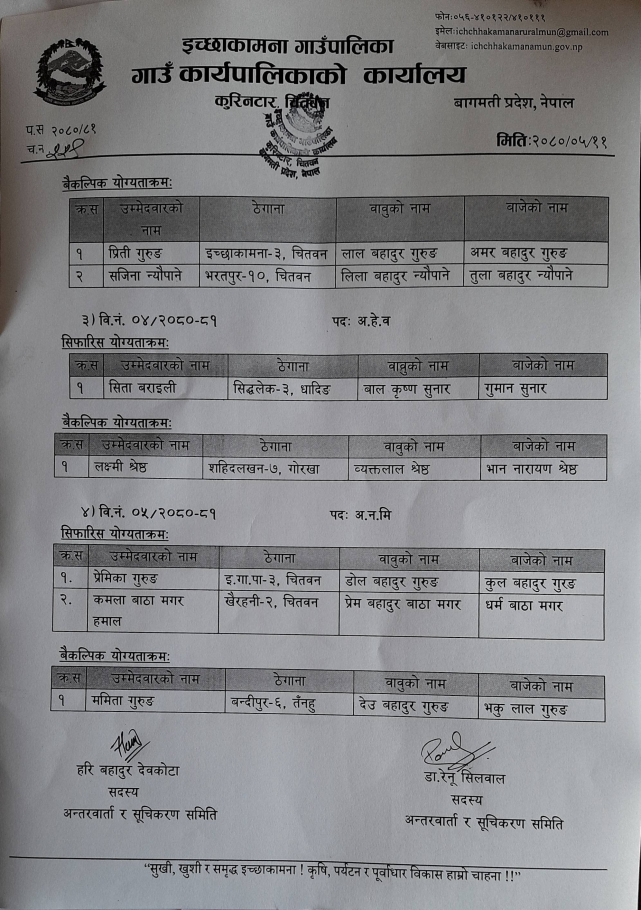 फोन:०५६-४१०१२२/४१०१११
इमेल:ichchhakamanaruralmun@gmail.com
वेबसाइट: ichchhakamanamun.gov.np
इच्छाकामना गाउँपालिका
गाउँ कार्यपालिकाको कार्यालय
कुरिनटार, चितवन
बागमती प्रदेश, नेपाल
प.स २०८०/८१
च.न
मिति:२०८०/०५/११
बैकल्पिक योग्यताक्रम:
क्र.स उम्मेदवारको नाम ठेगाना वावुको नाम बाजेको नाम
१ प्रिती गुरुङ इच्छाकामना-३, चितवन लाल बहादुर गुरुङ अमर बहादुर गुरुङ
२ सजिना न्यौपाने भरतपुर-१०, चितवन लिला बहादुर न्यौपाने तुला बहादुर न्यौपाने
३) वि.नं. ०४/२०८०-८१ पद: अ.हे.व
सिफारिस योग्यताक्रम:
क्र.स उम्मेदवारको नाम ठेगाना वावुको नाम बाजेको नाम
१ सिता बराइली सिद्धलेक-३, धादिङ बाल कृष्ण सुनार गुमान सुनार
बैकल्पिक योग्यताक्रम:
क्र.स उम्मेदवारको नाम ठेगाना वावुको नाम बाजेको नाम
१ लक्ष्मी श्रेष्ठ शहिदलखन-७, गोरखा व्यक्तलाल श्रेष्ठ भान नारायण श्रेष्ठ
४) वि.नं. ०५/२०८०-८१ पद: अ.न.मि
सिफारिस योग्यताक्रम:
क्र.स उम्मेदवारको नाम ठेगाना वावुको नाम बाजेको नाम
१. प्रेमिका गुरुङ इ.गा.पा-३, चितवन डोल बहादुर गुरुङ कुल बहादुर गुरङ
२. कमला बाठा मगर खैरहनी-२, चितवन प्रेम बहादुर बाठा मगर धर्म बाठा मगर
हमाल
बैकल्पिक योग्यताक्रम:
क्र.स उम्मेदवारको नाम ठेगाना वावुको नाम बाजेको नाम
१ ममिता गुरुङ बन्दीपुर-६, तँनहु देउ बहादुर गुरुङ भकु लाल गुरुङ
हरि बहादुर देवकोटा
सदस्य
अन्तरवार्ता र सूचिकरण समिति
डा.रेनू सिलवाल
सदस्य
अन्तरवार्ता र सूचिकरण समिति
"सुखी, खुशी र समृद्ध इच्छाकामना ! कृषि, पर्यटन र पूर्वाधार विकास हाम्रो चाहना !!"